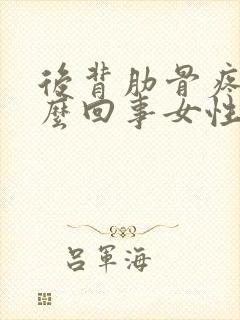 後背肋骨疼
麼回事女性
呂軍海